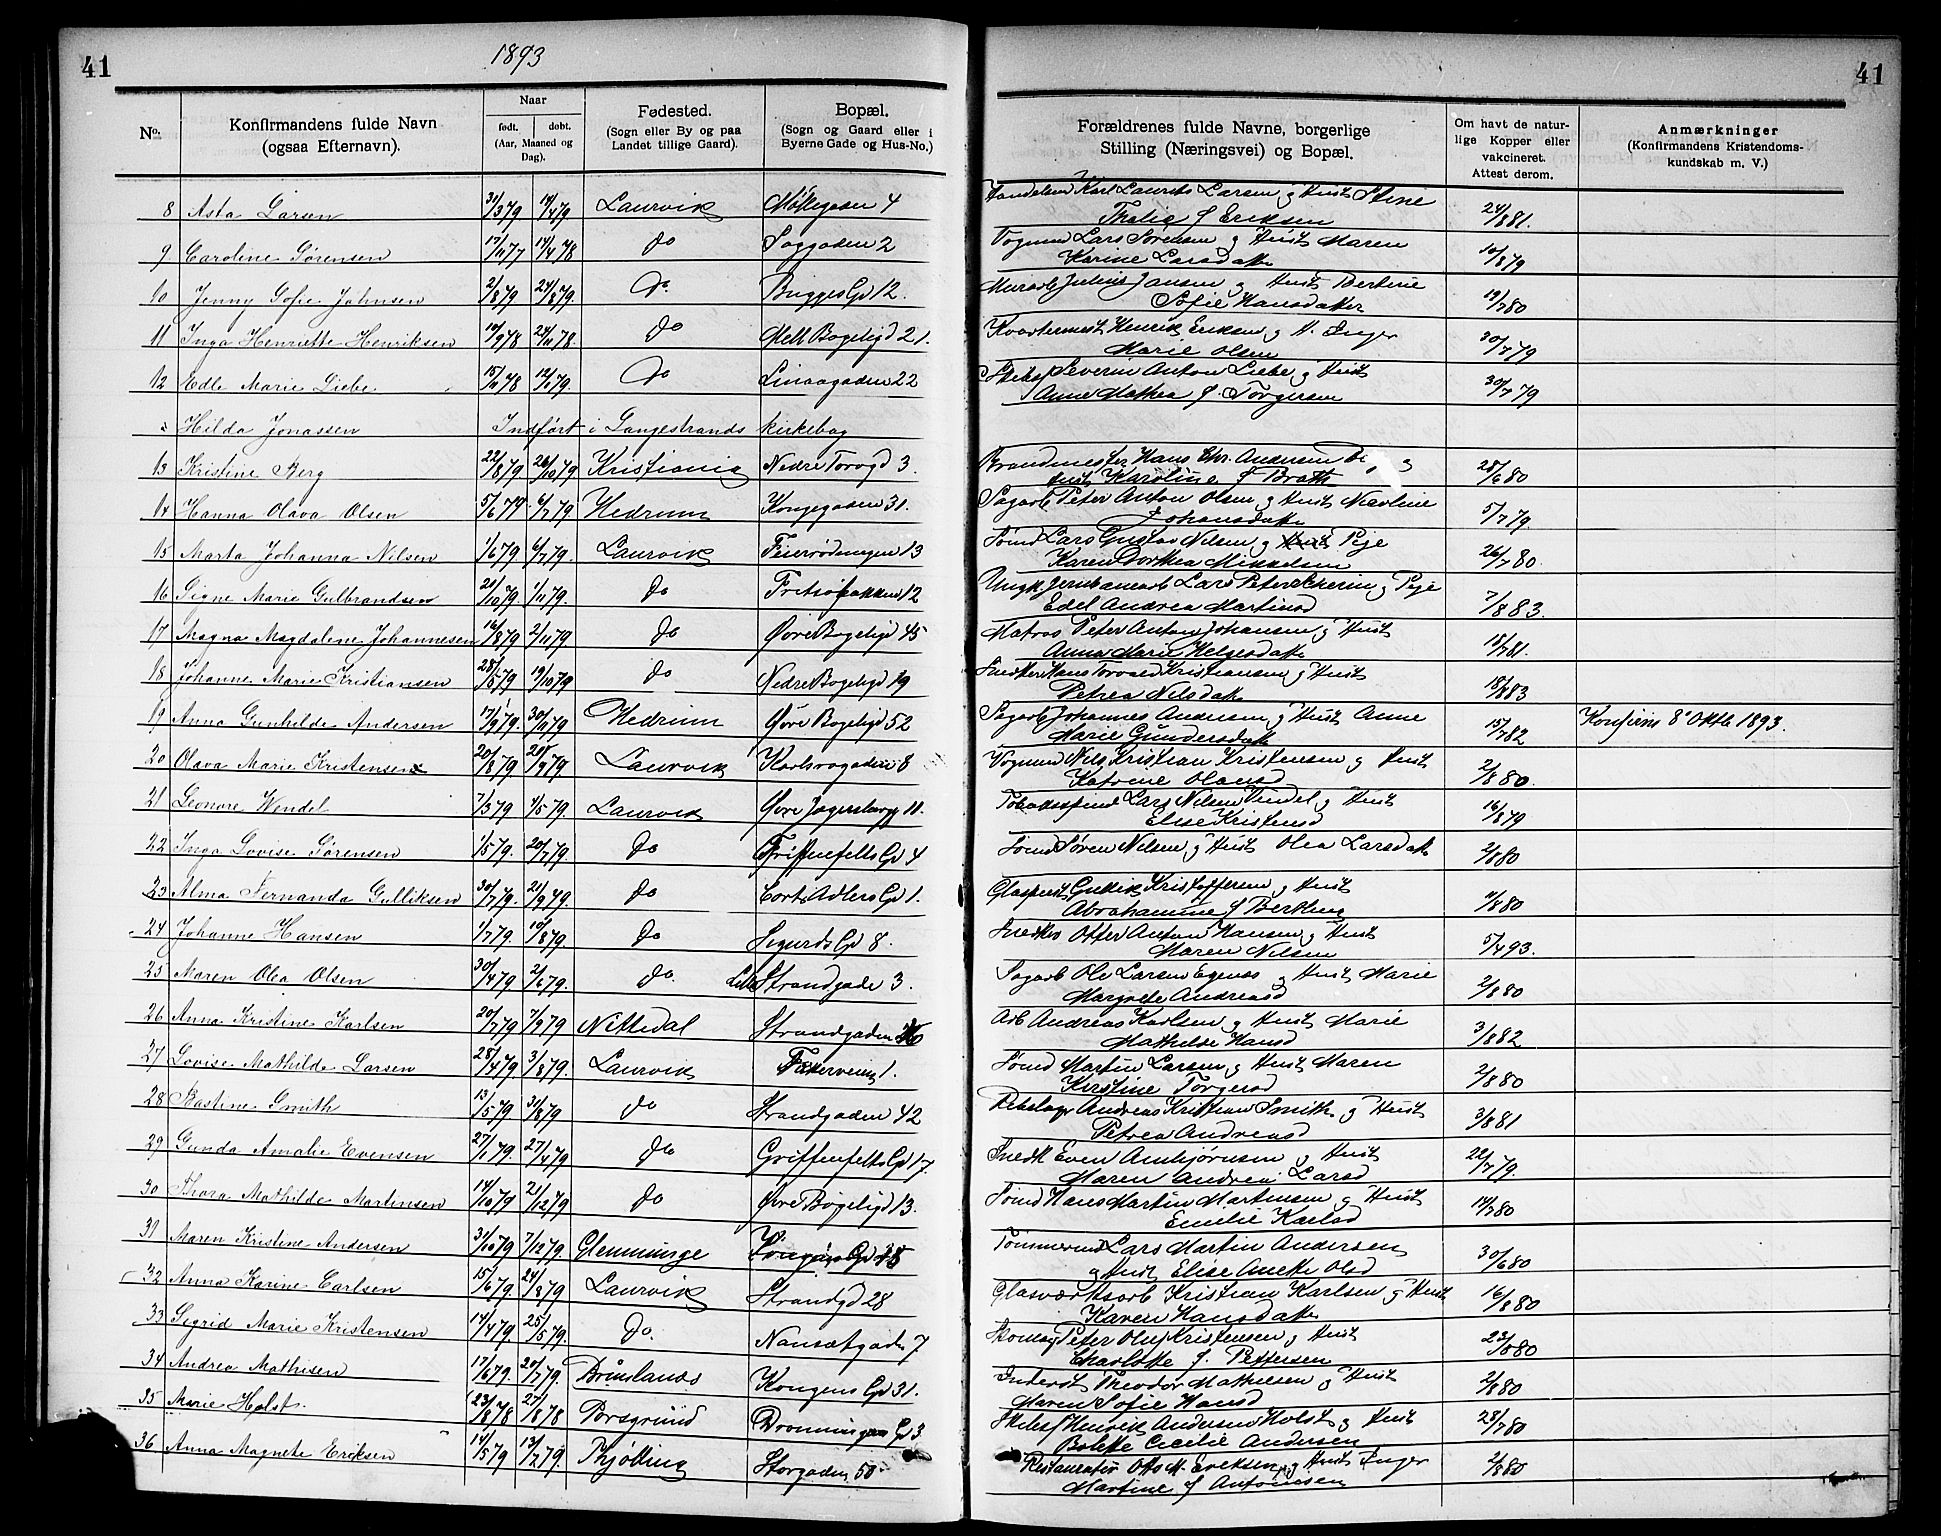 41
1893
41
No.
Konfirmandens fulde Navn
(ogsaa Efternavn).
Naar
født. døbt.
(Aar, Maaned og Dag).
Fødested.
(Sogn eller By og paa
Landet tillige Gaard).
Bopæl.
(Sogn og Gaard eller i
Byerne Gade og Hus-No.)
Forældrenes fulde Navne, borgerlige
Stilling (Næringsvei) og Bopæl.
Om havt de natur-
lige Kopper eller
vakcineret.
Attest derom.
Anmærkninger
(Konfirmandens Kristendoms-
kundskab m. V.)
8 Asta Larsen 31/3 79 14/4 79 Laurvik Møllegaden 4 Karl Laurits Larsen og Hust Stine
Thalie f Eriksen 24/8 81.
9 Caroline Sørensen 17/11 77 14/4 78 do Saggaden 2 Vogmnd Lars Sørensen og Hust Maren
Karine Larsdatt 10/8 79
10 Jenny Sofie Johnsen 2/8 79 24/8 79. do. Brygges Gd 12. Murarb Julius Jansen og Hust Bertine
Sofie Hansdatter 19/7 80
11 Inga Henriette Henriksen 10/9 78 24/11 78. do Mell Bøgeligd 21. Kvartermest Henrik Eriksen og H. Inger
Marie Olsen 30/7 79
12 Edle Marie Liebe 15/11 78 12/1 79. do Linaagaden 22 Skibsf Severin Anton Liebe og Hust
Anne Mathea f. Torgersen 30/7 79
Hilda Jonassen Indført i Langestrands kirkebog
13 Kristine Berg 22/8 79 26/10 79 Kristiania Nedre Torvgd 3. Brandmester Hans Chr. Andersen
Hust Karoline f Brath 28/6 80
14 Hanna Olava Olsen 5/6 79. 6/7 79 Hedrum Kongegaden 31. Sagarb Peter Anton Olsen og Hust Nicoline
Johansdatt 5/7 79.
15 Marta Johanna Nilsen 1/6 79 6/7 79. Laurvik 13 Sømd Lars Gustav Nilsen og Hust Pige
Karen Dorthea Mikkelsen 26/7 80.
16 Signe Marie Gulbrandsen 21/10 79 1/11 79. do Fritzøbakken 12 Ungk Jernbanearb Lars Peter og Pige
Edel Andrea Martinsd 7/8 83.
17 Magna Magdaline Johannesen 16/8 79 2/11 79. do Øvre Bøgeligd 45 Matros Peter Anton Johansen og Hust
Anna Marie Helgesdatt 18/7 81.
18 Johanne Marie Kristiansen 28/5 79 19/10 79 do Nedre Bøgeligd 19 Snedker Hans Torvald Kristiansen og Hust
Petrea Nilsdatt 18/7 83
19 Anna Gunhilde Andersen 17/9 79. 30/11 79 Hedrum Øvre Bøgeligd 52 Sagarb Johannes Andersen og Hust Anne
Marie Gundersdatt 15/7 82 Konfirm 8' Oktb 1893.
20 Olava Marie Kristensen 20/8 79 28/9 79 Laurvik Karlsrogaden 8 Vogmnd Nils Kristian Kristensen og Hust
Katrine Olausd 2/8 80.
21 Leonore Wendel 7/3 79 1/5 79. Laurvik Øvre Jegersborgg 11. Tobaksspind Lars Nilsen Vendel og Hust
Elise Kristensd 16/8 79
22 Inga Lovise Sørensen 1/5 79. 20/7 79. do Griffenfelts Gd 4 Sømd Søren Nilsen og Hust Olea Larsdatt 2/8 80
23 Alma Fernanda Gulliksen 30/7 79. 21/9 79. do Cort Adlers Gd 1. Glaspust Gullik Kristoffersen og Hust
Abrahamine f Bertling 11/8 80
24 Johanne Hansen 1/7 79. 10/8 79. do Sigurds Gd 8. Snedker Otter Anton Hansen og Hust
Maren Nilsen 5/4 93.
25 Maren Olea Olsen 30/4 79 2/6 79. do. Lille Strandgade 3. Sagarb Ole Larsen Egenes og Hust Marie
Margrete Andreasd 2/8 80
26 Anna Kristine Karlsen 20/7 79 7/9 79 Nittedal Strandgaden Arb Andreas Karlsen og Hust Marie
Mathilde Hansd 3/8 82
27 Lovise Mathilde Larsen 28/4 79 3/8 79. Laurvik 1. Sømd Martin Larsen og Hust Maren
Kirstine Torgersd 2/8 80
28 Bastine Smith 13/5 79. 31/8 79 do Strandgaden 42 Rebslagr Andreas Kristian Smith og Hust
Petrea Andreasd 3/8 81
29 Gunda Amalie Evensen 27/1 79. 27/4 79 do Griffenfelts Gd 17. Snedk Even Arnbjørnsen og Hust
Maren Andrea Larsd 22/7 79.
30 Thora Mathilde Martinsen 14/10 79 21/12 79 do Øvre Bøgeligd 13. Sømd Hans Martin Martinsen og Hust
Emilie Karlsd 14/7 80
31 Maren Kristine Andersen 31/10 79 7/12 79 Glemminge Kongens Gd Tømmermd Lars Martin Andersen
og Hust Elise Anette Olsd 30/6 80
32 Anna Karine Carlsen 15/6 79. 24/8 79 Laurvik Strandgd 28 Glasværksarb Kristian Karlsen og Hust
Karen Hansdatt 16/8 80
33 Sigrid Marie Kristensen 14/4 79. 25/5 79. do. Nansetgade 7 Skomag Peter Oluf Kristensen og Hust
Charlotte f. Pettersen 23/8 80
34 Andrea Mathisen 17/6 79. 20/7 79. Brunlanes Kongens Gd 31. Inderst Theodor Mathisen og Hust
Maren Sofie Hansd 2/8 80
35 Marie Holst. 23/8 78 27/8 78 Porsgrund Dronningens Gd 3 Skibsf Henrik Andersen Holst og Hust
Bolette Cecilie Andersen 28/7 80
36 Anna Magnete Eriksen 14/5 79 13/7 79. Thjølling Storgaden 50 Restauratør Otto M. Eriksen og Hust Inger
Martine f Antonisen 2/8 80